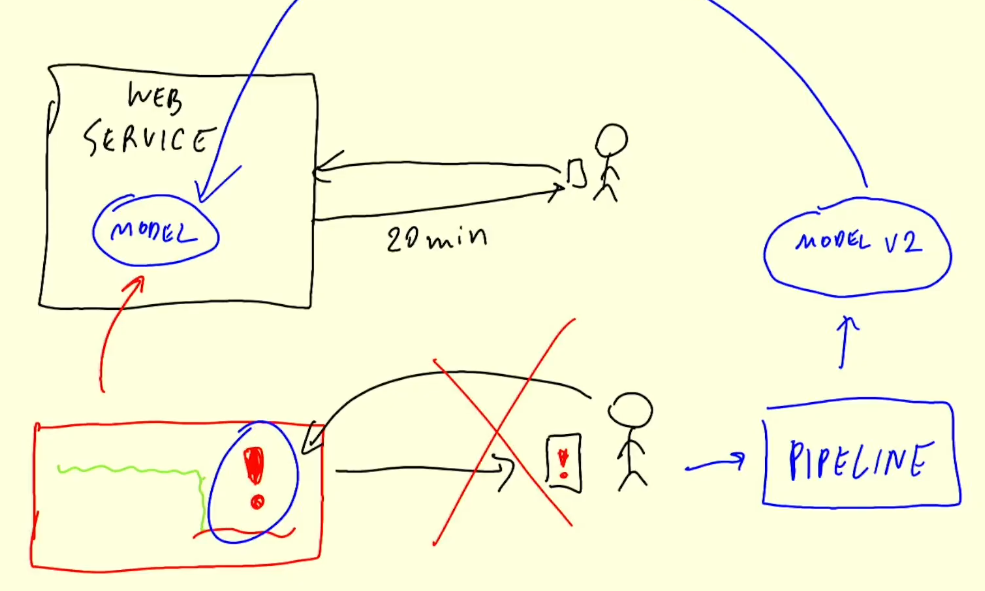 WEB
SERVICE
MODEL
20min
MODEL V2
!
!
PIPELINE